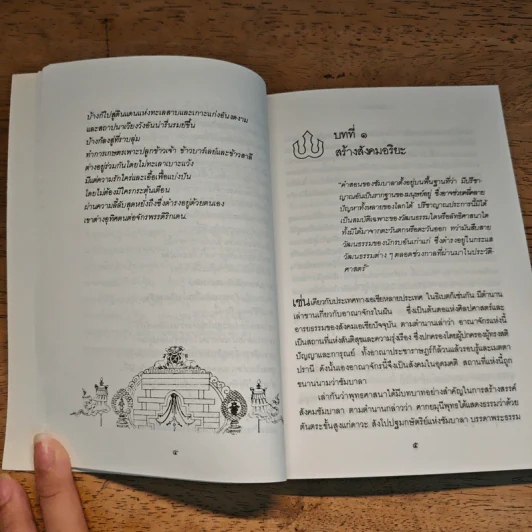 บ้างก็ไปสู่ดินแดนแห่งทะเลสาบและเกาะแก่งอันงดงาม
และสถาปนาเวียงวังอันน่ารื่นรมย์ขึ้น
บ้างก็ลงสู่ที่ราบลุ่ม
ทำการเกษตรเพาะปลูกข้าวเจ้า ข้าวบาร์เลย์และข้าวสาลี
ต่างอยู่ร่วมกันโดยไม่ทะเลาะเบาะแว้ง
มีแต่ความรักใคร่และเอื้อเฟื้อแบ่งปัน
โดยไม่ต้องมีใครกระตุ้นเตือน
ผ่านความลี้ลับสุดหยั่งถึงซึ่งดำรงอยู่ด้วยตนเอง
เขาต่างอุทิศตนต่อจักรพรรดิริกเดน
๔
บทที่ ๑
สร้างสังคมอริยะ
"คำสอนของชัมบาลาตั้งอยู่บนพื้นฐานที่ว่า มีปรีชา
ญาณอันเป็นรากฐานของมนุษย์อยู่ ซึ่งอาจช่วยคลี่คลาย
ปัญหาทั้งหลายของโลกได้ ปรีชาญาณประการนี้มิได้
เป็นสมบัติเฉพาะของวัฒนธรรมใดหรือลัทธิศาสนาใด
ทั้งมิได้มาจากตะวันตกหรือตะวันออก ทว่ามันสืบสาย
วัฒนธรรมของนักรบอันเก่าแก่ ซึ่งดำรงอยู่ในกระแส
วัฒนธรรมต่าง ๆ ตลอดช่วงกาลที่ผ่านมาในประวัติ-
ศาสตร์"
เช่นเดียวกับประเทศทางเอเชียหลายประเทศ ในธิเบตก็เช่นกัน มีตำนาน
เล่าขานเกี่ยวกับอาณาจักรในฝัน ซึ่งเป็นต้นตอแห่งศิลปศาสตร์และ
อารยธรรมของสังคมเอเชียปัจจุบัน ตามตำนานเล่าว่า อาณาจักรแห่งนี้
เป็นสถานที่แห่งสันติสุขและความรุ่งเรือง ซึ่งปกครองโดยผู้ปกครองผู้ทรงสติ
ปัญญาและการุณย์ ทั้งอาณาประชาราษฎร์ก็ล้วนแล้วรอบรู้และเมตตา
ปรานี ดังนั้นเองอาณาจักรนี้จึงเป็นสังคมในอุดมคติ สถานที่แห่งนี้ถูก
ขนานนามว่าชัมบาลา
เล่ากันว่าพุทธศาสนาได้มีบทบาทอย่างสำคัญในการสร้างสรรค์
สังคมชัมบาลา ตามตำนานกล่าวว่า ศากยมุนีพุทธได้แสดงธรรมว่าด้วย
ตันตระชั้นสูงแก่ดาวะ สังโปปฐมกษัตริย์แห่งชัมบาลา บรรดาพระธรรม
๕